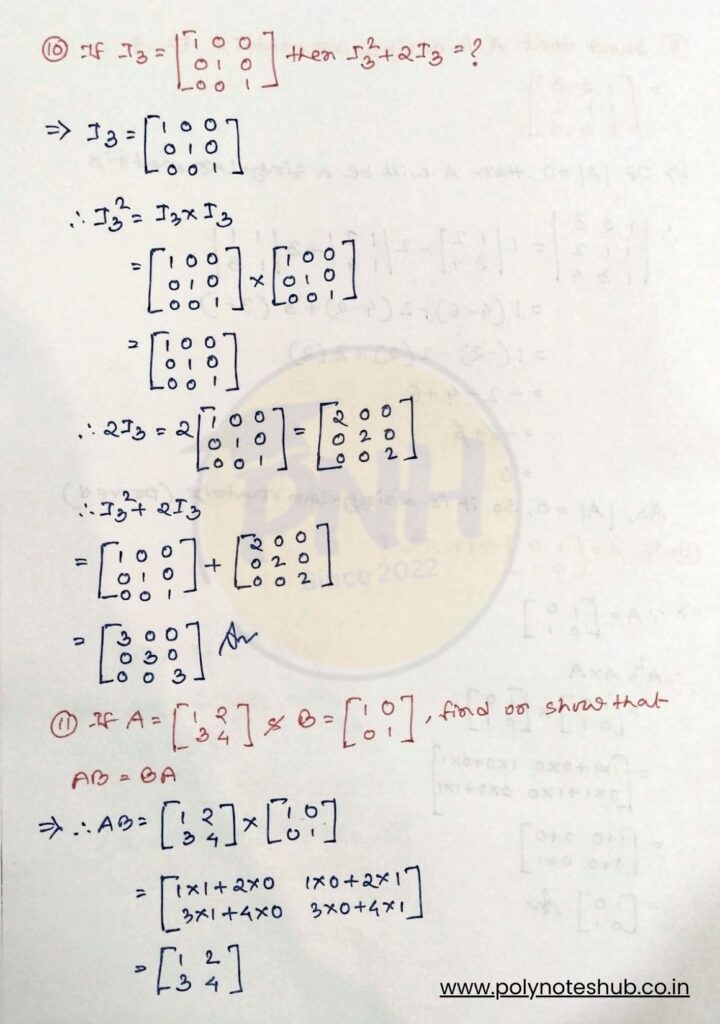 ⑩ If I₃ = [1 0 0
0 1 0
0 0 1] then I₃² + 2I₃ = ?
⇒ I₃ = [1 0 0
0 1 0
0 0 1]
∴ I₃² = I₃ × I₃
= [1 0 0
0 1 0
0 0 1] × [1 0 0
0 1 0
0 0 1]
= [1 0 0
0 1 0
0 0 1]
∴ 2I₃ = 2[1 0 0
0 1 0
0 0 1] = [2 0 0
0 2 0
0 0 2]
∴ I₃² + 2I₃
= [1 0 0
0 1 0
0 0 1] + [2 0 0
0 2 0
0 0 2]
= [3 0 0
0 3 0
0 0 3] An
PNH
Since 2022
⑪ If A = [1 2
3 4] & B = [1 0
0 1], find or show that
AB = BA
⇒ ∴ AB = [1 2
3 4] × [1 0
0 1]
= [1×1+2×0 1×0+2×1
3×1+4×0 3×0+4×1]
= [1 2
3 4]
www.polynoteshub.co.in